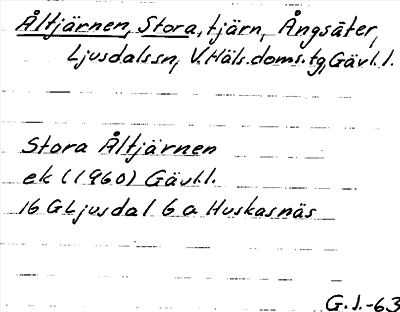 Åltjärnen, Stora, tjärn, Ångsäter,
Ljusdalssn, V. Häls. doms. tg, Gävl. l.
Stora Åltjärnen
ek (1960) Gävl.l.
16 G Ljusdal 6 a Huskasnäs
G. l. -63